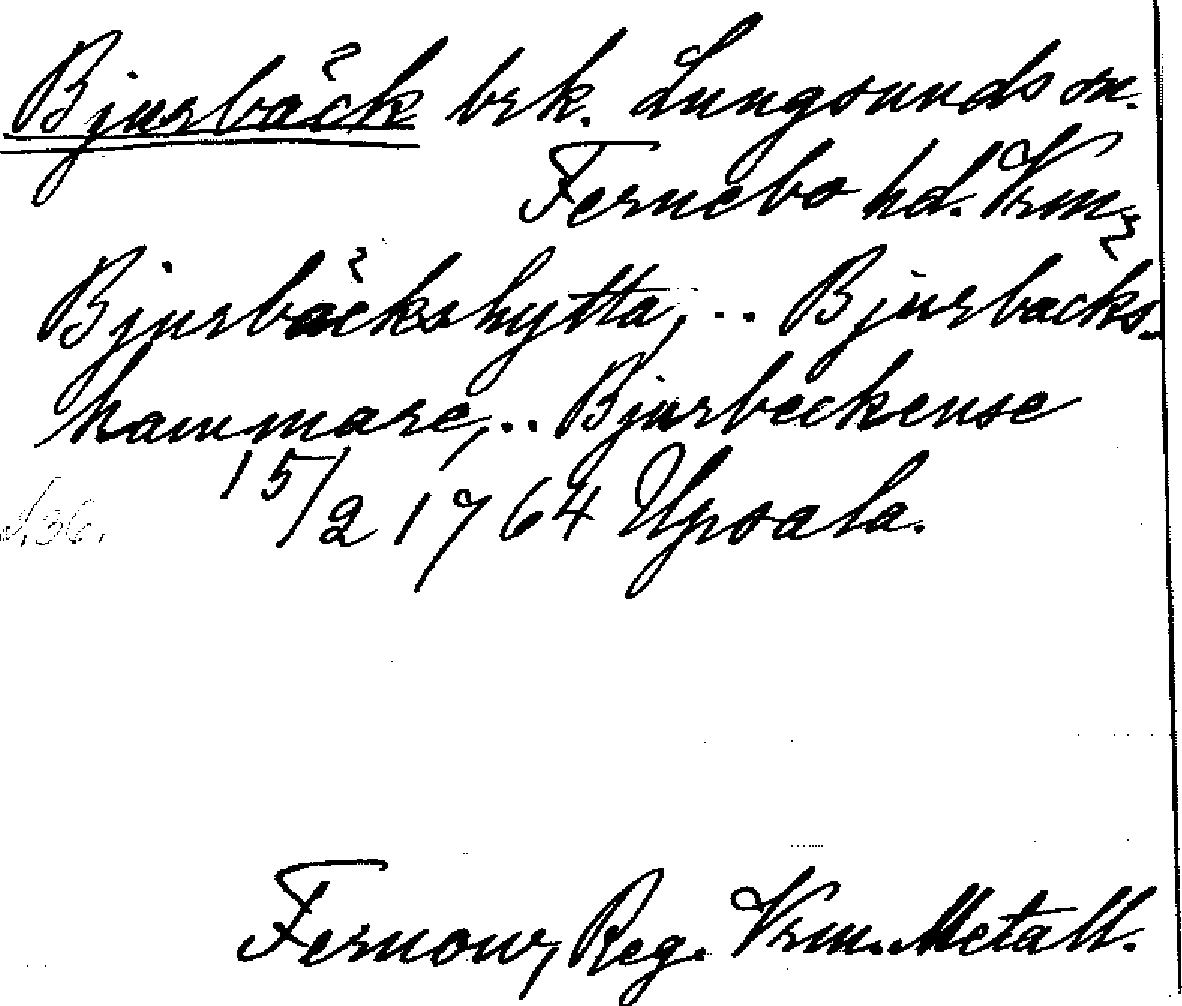 Bjurbäck brk. Lungsunds sn.
Fernebo hd. Vrm.
Bjurbäckshytta,.. Bjurbäcks-
hammare,.. Bjurbeckense
15/2 1764 Upsala.
s. 36.
Fernow, Reg. Vrm. Metall.